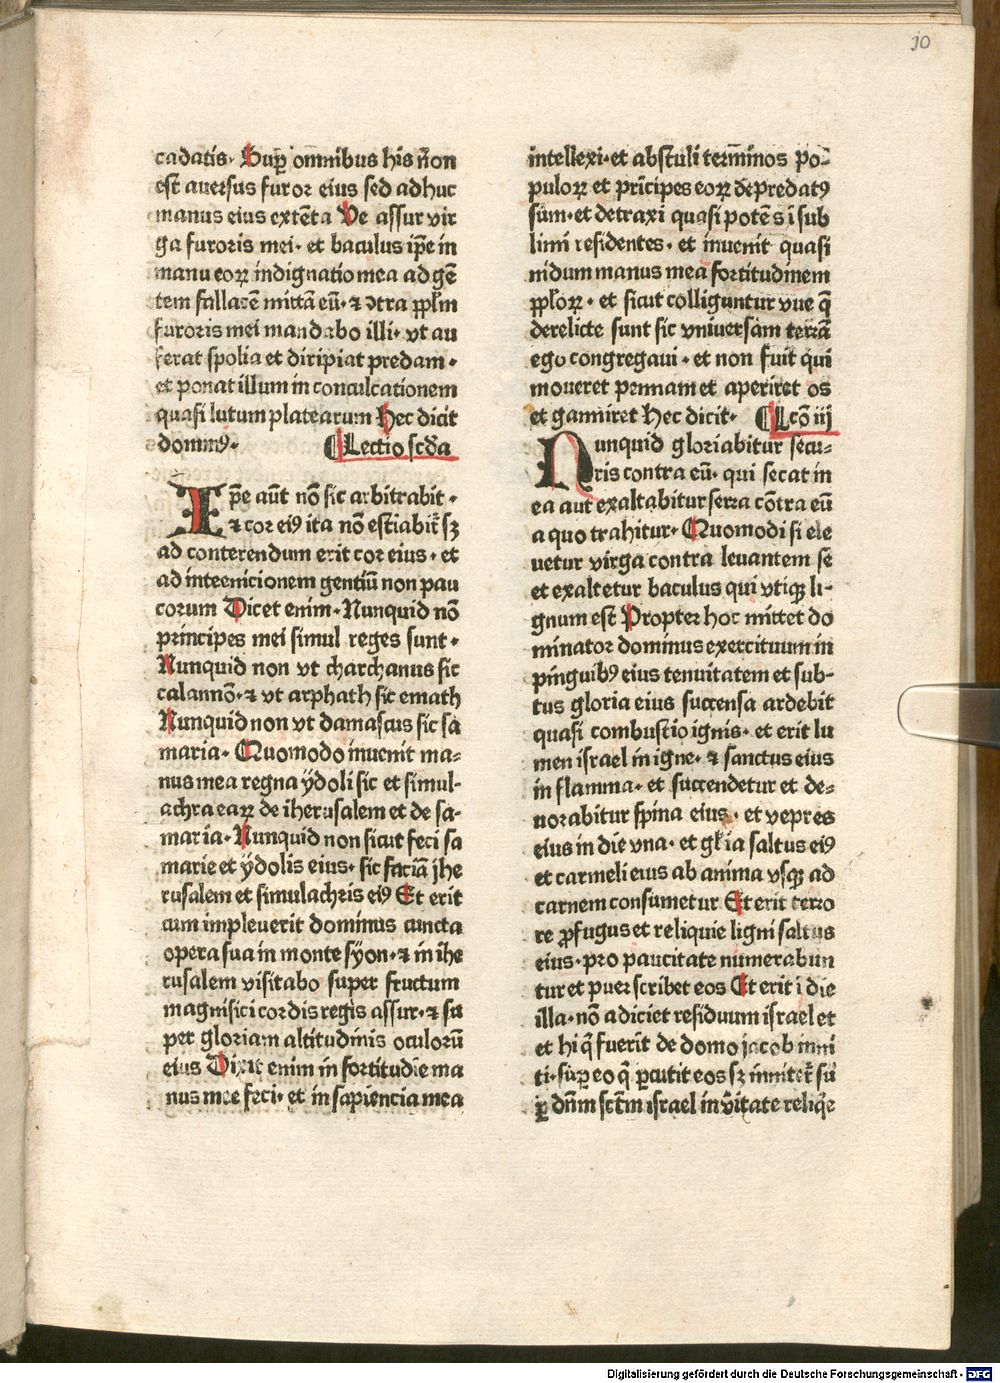 10
cadatis· Sup̱ omnibus his nōn
est auersus furor eius sed adhuc
manus eius extēta Ve assur vir
ga furoris mei· et baculus ip̄e in
manu eoꝝ indignatio mea ad gē
tem fallacē mittā eū· ⁊ ↄtra pp̄lm
furoris mei mandabo illi· vt au
ferat spolia et diripiat predam·
et ponat illum in conculcationem
quasi lutum platearum Hec dicit
dominꝰ· ¶Lectio scd̄a
Ip̄e aūt nō sic arbitrabit·
⁊ cor eiꝰ ita nō estiabit̄ sꝫ
ad conterendum erit cor eius· et
ad inteenicionem gentiū non pau
corum Dicet enim· Nunquid nō
principes mei simul reges sunt·
Nunquid non vt charchanus sic
calannō· ⁊ vt arphath sic emath
Nunquid non vt damascus sic sa
maria· Quomodo inuenit ma⸗
nus mea regna ÿdoli sic et simul⸗
achra eaꝝ de iherusalem et de sa⸗
maria· Nunquid non sicut feci sa
marie et ÿdolis eius· sic faciā jhe
rusalem et simulachris eiꝰ Et erit
cum impleuerit dominus cuncta
opera sua in monte sÿon· ⁊ in ihe
rusalem visitabo super fructum
magnifici cordis regis assur· ⁊ su
per gloriam altitudinis oculorū
eius Dixit enim in fortitudīe ma
nus mee feci· et in sapiencia mea
intellexi· et abstuli terminos po⸗
puloꝝ et prīcipes eoꝝ depredatꝰ
sum· et detraxi quasi potēs ī sub
limi residentes· et inuenit quasi
nidum manus mea fortitudinem
pp̄loꝝ· et sicut colliguntur oue q̄
derelicte sunt sic vniuersam terrā
ego congregaui· et non fuit qui
moueret pennam et aperiret os
et ganniret Hec dicit· ¶Lcō iij
Nunquid gloriabitur secu⸗
ris contra eū· qui secat in
ea aut exaltabitur serra cōtra eū
a quo trahitur· Quomodi si ele
uetur virga contra leuantem se
et exaltetur baculus qui vtiqꝫ li⸗
gnum est Propter hoc mittet do
minator dominus exercituum in
pinguibꝰ eius tenuitatem et sub⸗
tus gloria eius succensa ardebit
quasi combustio ignis· et erit lu
men israel in igne· ⁊ sanctus eius
in flamma· et succendetur et de⸗
uorabitur spina eius· et vepres
eius in die vna· et gl̄ia saltus eiꝰ
et carmeli eius ab anima vsqꝫ ad
carnem consumetur Et erit terro
re ꝓfugus et reliquie ligni saltus
eius· pro paucitate numerabun
tur et puer scribet eos Et erit ī die
illa· nō adiciet residuum israel et
et hi q̄ fuerīt de domo jacob inni
ti· sup̱ eo q̄ ꝑcutit eos sꝫ innitet̄ su
ꝑ dn̄m sct̄m israel in v̄itate reliqͥe
Digitalisierung gefördert durch die Deutsche Forschungsgemeinschaft - DFG